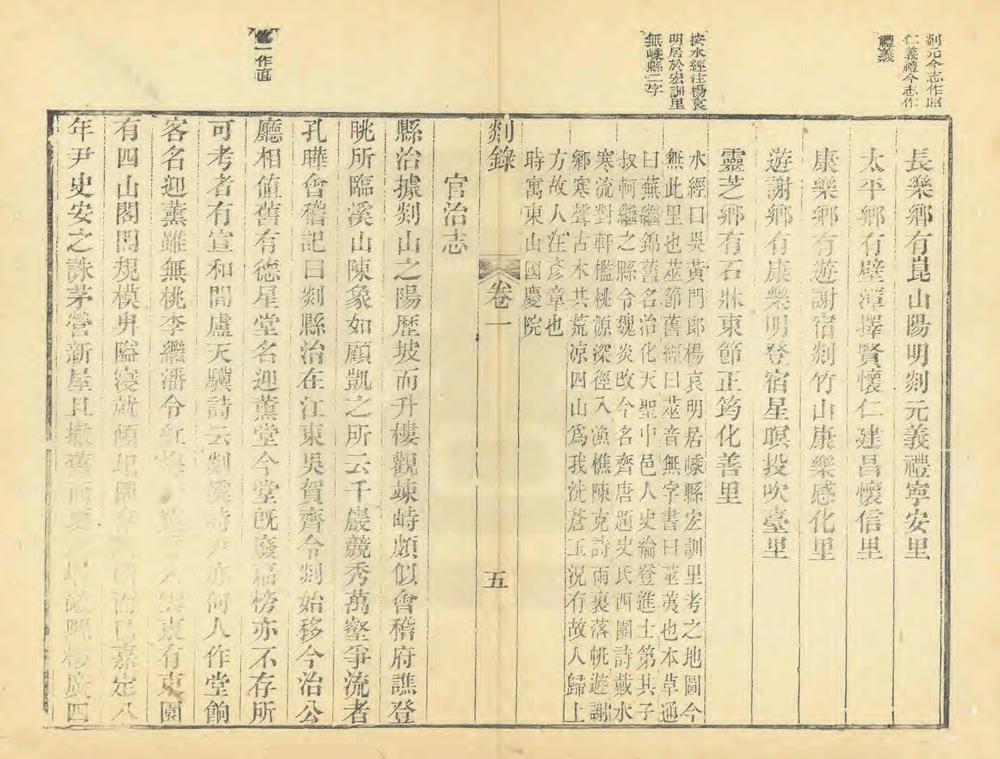 剡元今志作昭
仁義禮今志作
禮義
按水經注楊哀
明居於宏訓里
無嵊縣二字
一作面
長樂鄉有崑山陽明剡元義禮寧安里
太平鄉有壁潭擇賢懷仁建昌懷信里
康樂鄉有遊謝宿剡竹山康樂感化里
遊謝鄉有康樂明登宿星暝投吹臺里
靈芝鄉有石牀東節正筠化善里
水經曰吳黃門郎楊哀明居嵊縣宏訓里考之地圖今
無此里也莁節舊經曰莁音無字書曰莁荑也本草通
曰蕪繼錦舊名治化天聖中邑人史綸登進士第其子
叔軻繼之縣令魏炎改今名齊唐題史氏西園詩戴水
寒流對軒檻桃源深徑入漁樵陳克詩雨裏落帆遊謝
鄉寒聲古木共荒凉四山爲我洗蒼玉況有故人歸上
方故人汪彥章也
時寓東山國慶院
剡錄 卷一 五
官治志
縣治據剡山之陽歷坡而升樓觀竦峙頗似會稽府譙登
眺所臨溪山陳象如顧凱之所云千巖競秀萬壑爭流者
孔曄會稽記曰剡縣治在江東吳賀齊令剡始移今治公
廳相值舊有德星堂名迎薰堂今堂旣廢扁榜亦不存所
可考者有宣和間盧天驥詩云剡溪詩 何人作堂餉
客名迎薰雖無桃李繼潘令 東有東園
有四山閣閣規模卑隘寖就傾圮園 而已嘉定八
年尹史安之誅茅營新屋且撤舊 廣四